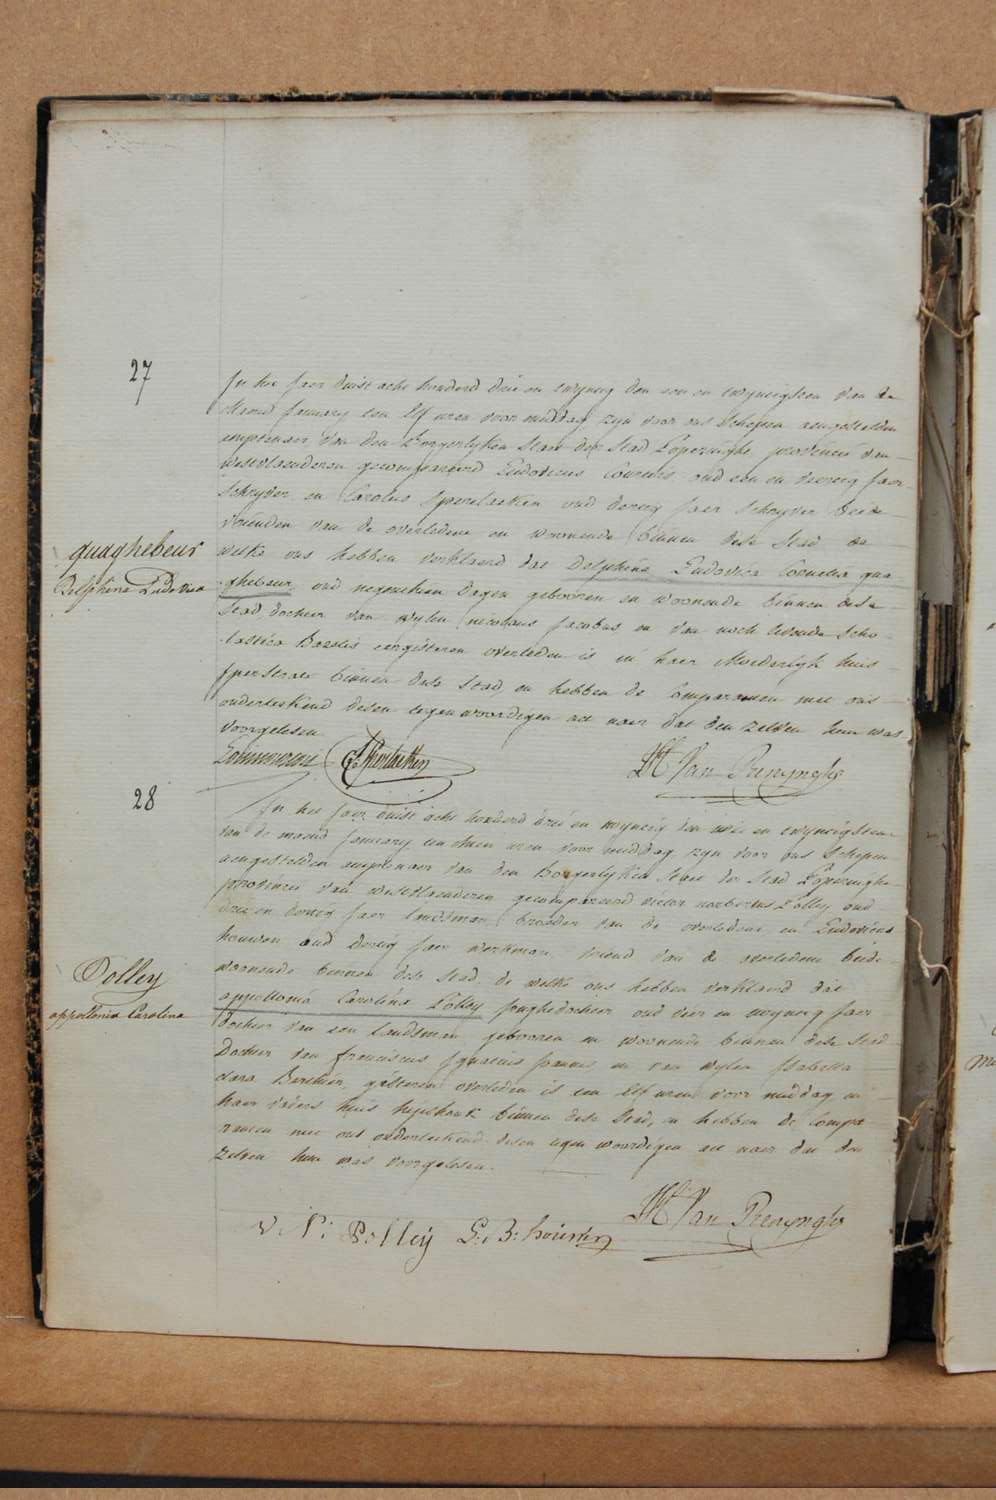 27
In het jaer duist acht honderd drie en twyntig den een en twyntigsten van de
Maend January ten Elf uren voor middag zyn voor ons Schepen aengestelden
amptenaer van den Borgerlyken staet der Stad Poperinghe provincie van
Westvlaenderen gecompareerd Ludovicus oud een en veertig jaer
Schryver en Carolus Sperelaeken oud dertig jaer Schryver beide
vrienden van de overledene en woonende binnen deze Stad de
welke ons hebben verklaerd dat Delphina Ludovica Cornelia qua
ghebeur oud negenthien dagen gebooren en woonende binnen deze
Stad dochter van wylen nicolaus Jacobus en van noch levende Scho
lastica eergisteren overleden is in haer Moederlyk huis
binnen deze Stad, en hebben de Comparanten met ons
onderteekend desen tegenwoordigen act naer dat den zelven hun was
voorgelesen
quaghebeur
Delphina Ludovica
Van Renynghe
28
In het jaer duist acht honderd drie en twyntig den twee en twyntigsten
van de maend January ten thien uren voor middag zyn voor ons Schepen
aengestelden amptenaer van den Borgerlyken staet der Stad Poperinghe
provincie van Westvlaenderen gecompareerd victor norbertus Polley oud
drie en dertig jaer Landsman broeder van de overledene en Ludovicus
houwen oud dertig jaer werkman vriend van de overledene beide
woonende binnen deze Stad, de welke ons hebben verklaerd dat
appollonia Carolina Polley jonghedochter oud vier en twyntig jaer
dochter van een Landsman gebooren en woonende binnen deze Stad
Dochter van franciscus Ignatius Joannes en van wylen Isabella
Clara gisteren overleden is ten Elf uren voor middag in
haer vaders huis binnen deze Stad, en hebben de Compa
ranten met ons onderteekend desen tegen woordigen act naer dat den
zelven hun was voorgelesen.
Polley
appollonia Carolina
Van Renynghe
v: N: Polleÿ L: B: